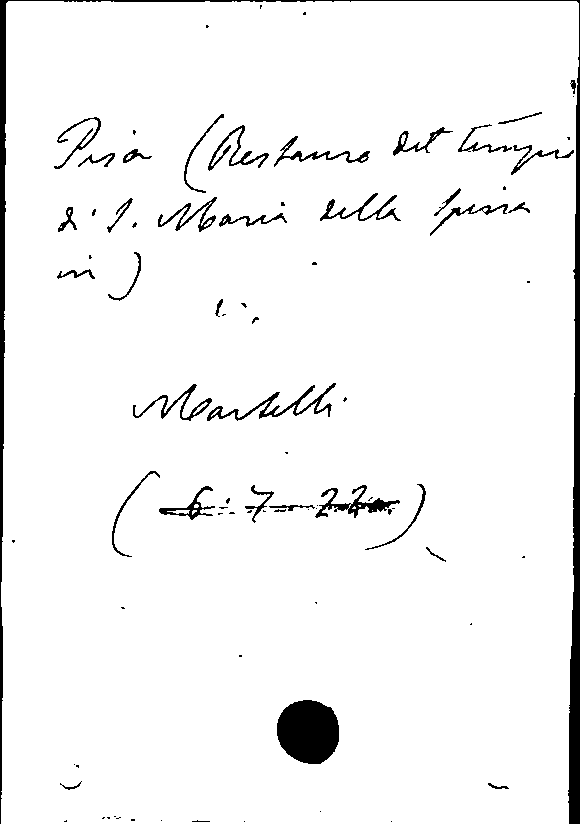 Pisa (Restauro del tempio
di S. Maria della Spina
in)
Martelli
(6-7-22)